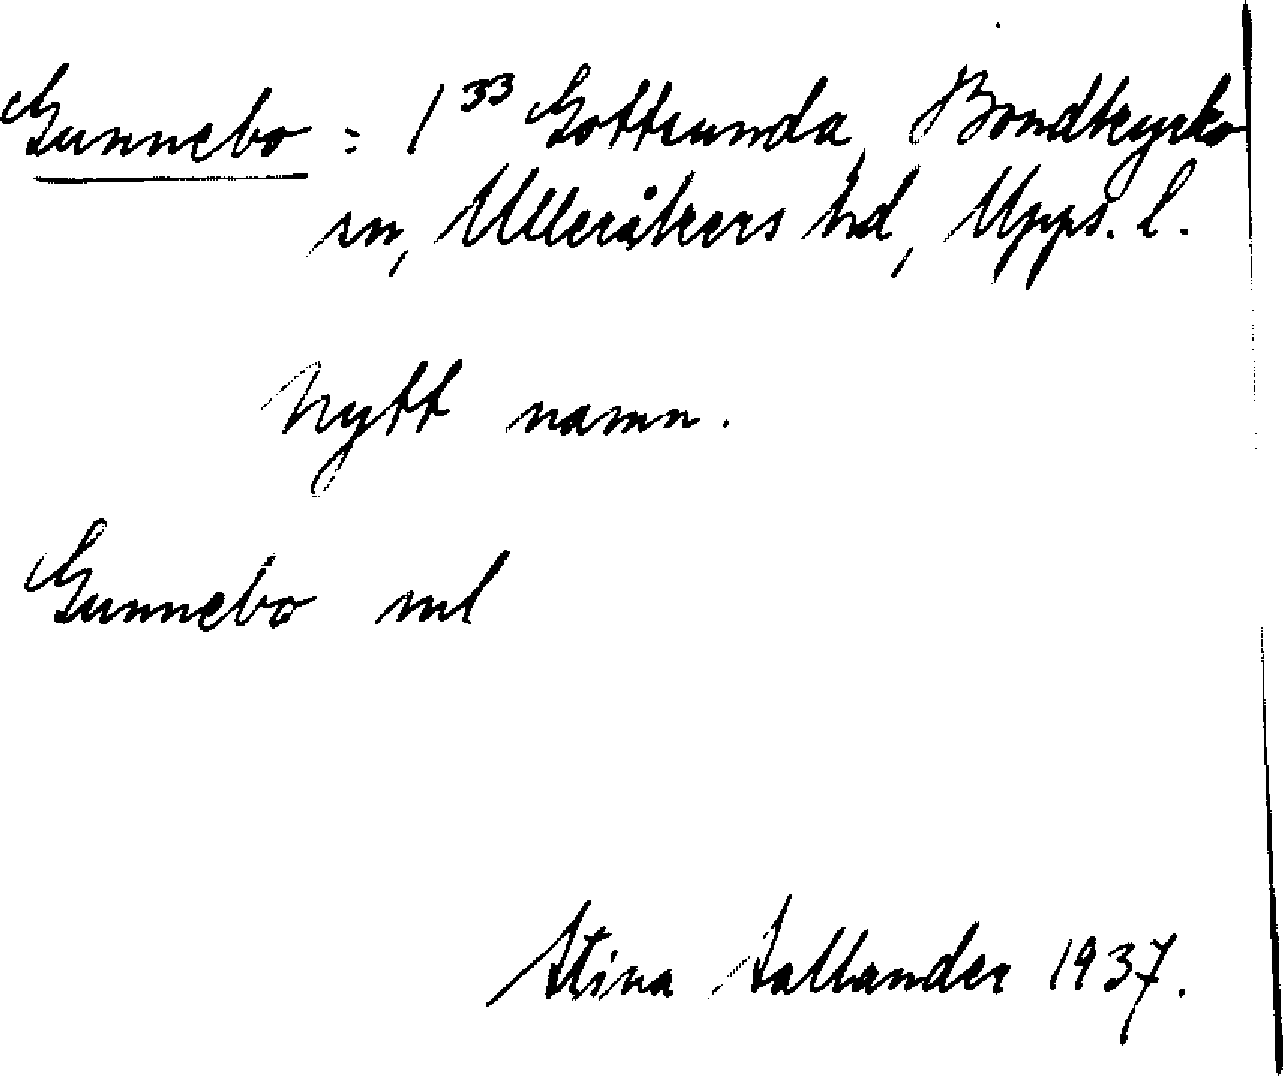 Gunnebo = 1³³ Gottsunda, Bondkyrko
sn, Ulleråkers hd, Upps. l.
Nytt namn.
Gunnebo ml
Stina Sallander 1937.